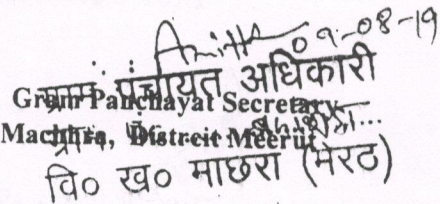 09-08-19
ग्राम पंचायत अधिकारी
Gram Panchayat Secretary
Machhra, Distreit Meerut
वि० ख० माछरा (मेरठ)